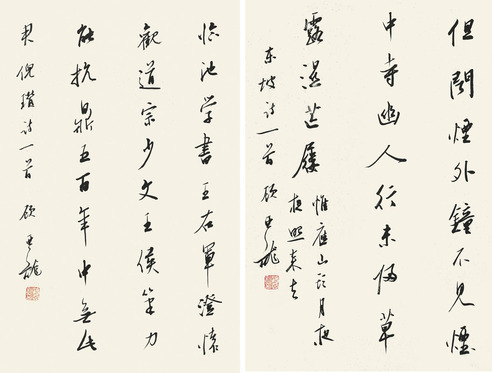 但聞煙外鐘不見煙
中寺幽人行未歸草
露濕芒屨惟應山頭月夜
夜照來去
東坡詩一首 顧廷龍
臨池学書王右軍澄懷
觀道宗少文王侯筆力
能扛鼎五百年中無此
君 倪瓚詩一首 顧廷龍